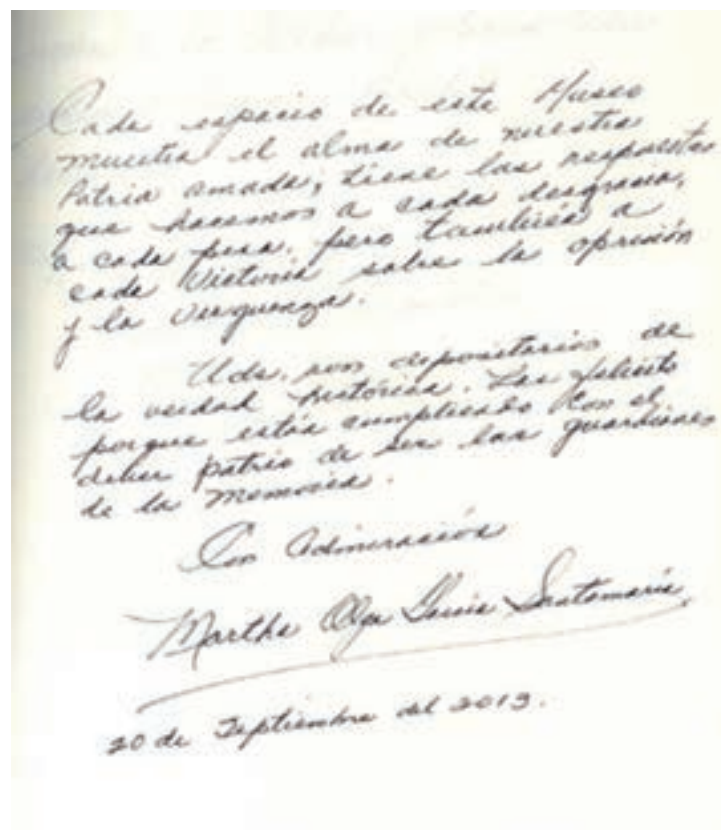 Cada espacio de este Museo
muestra el alma de nuestra
Patria amada; tiene las respuestas
que hacemos a cada desgracia,
a cada pena, pero también a
cada Victoria sobre la opresión
y la verguenza.
Uds. son depositarios de
la verdad histórica. Las felicito
porque están cumpliendo con el
deber patrio de ser las guardianes
de la memoria.
Con Admiración
Martha Olga García Santamaría
20 de Septiembre del 2013.